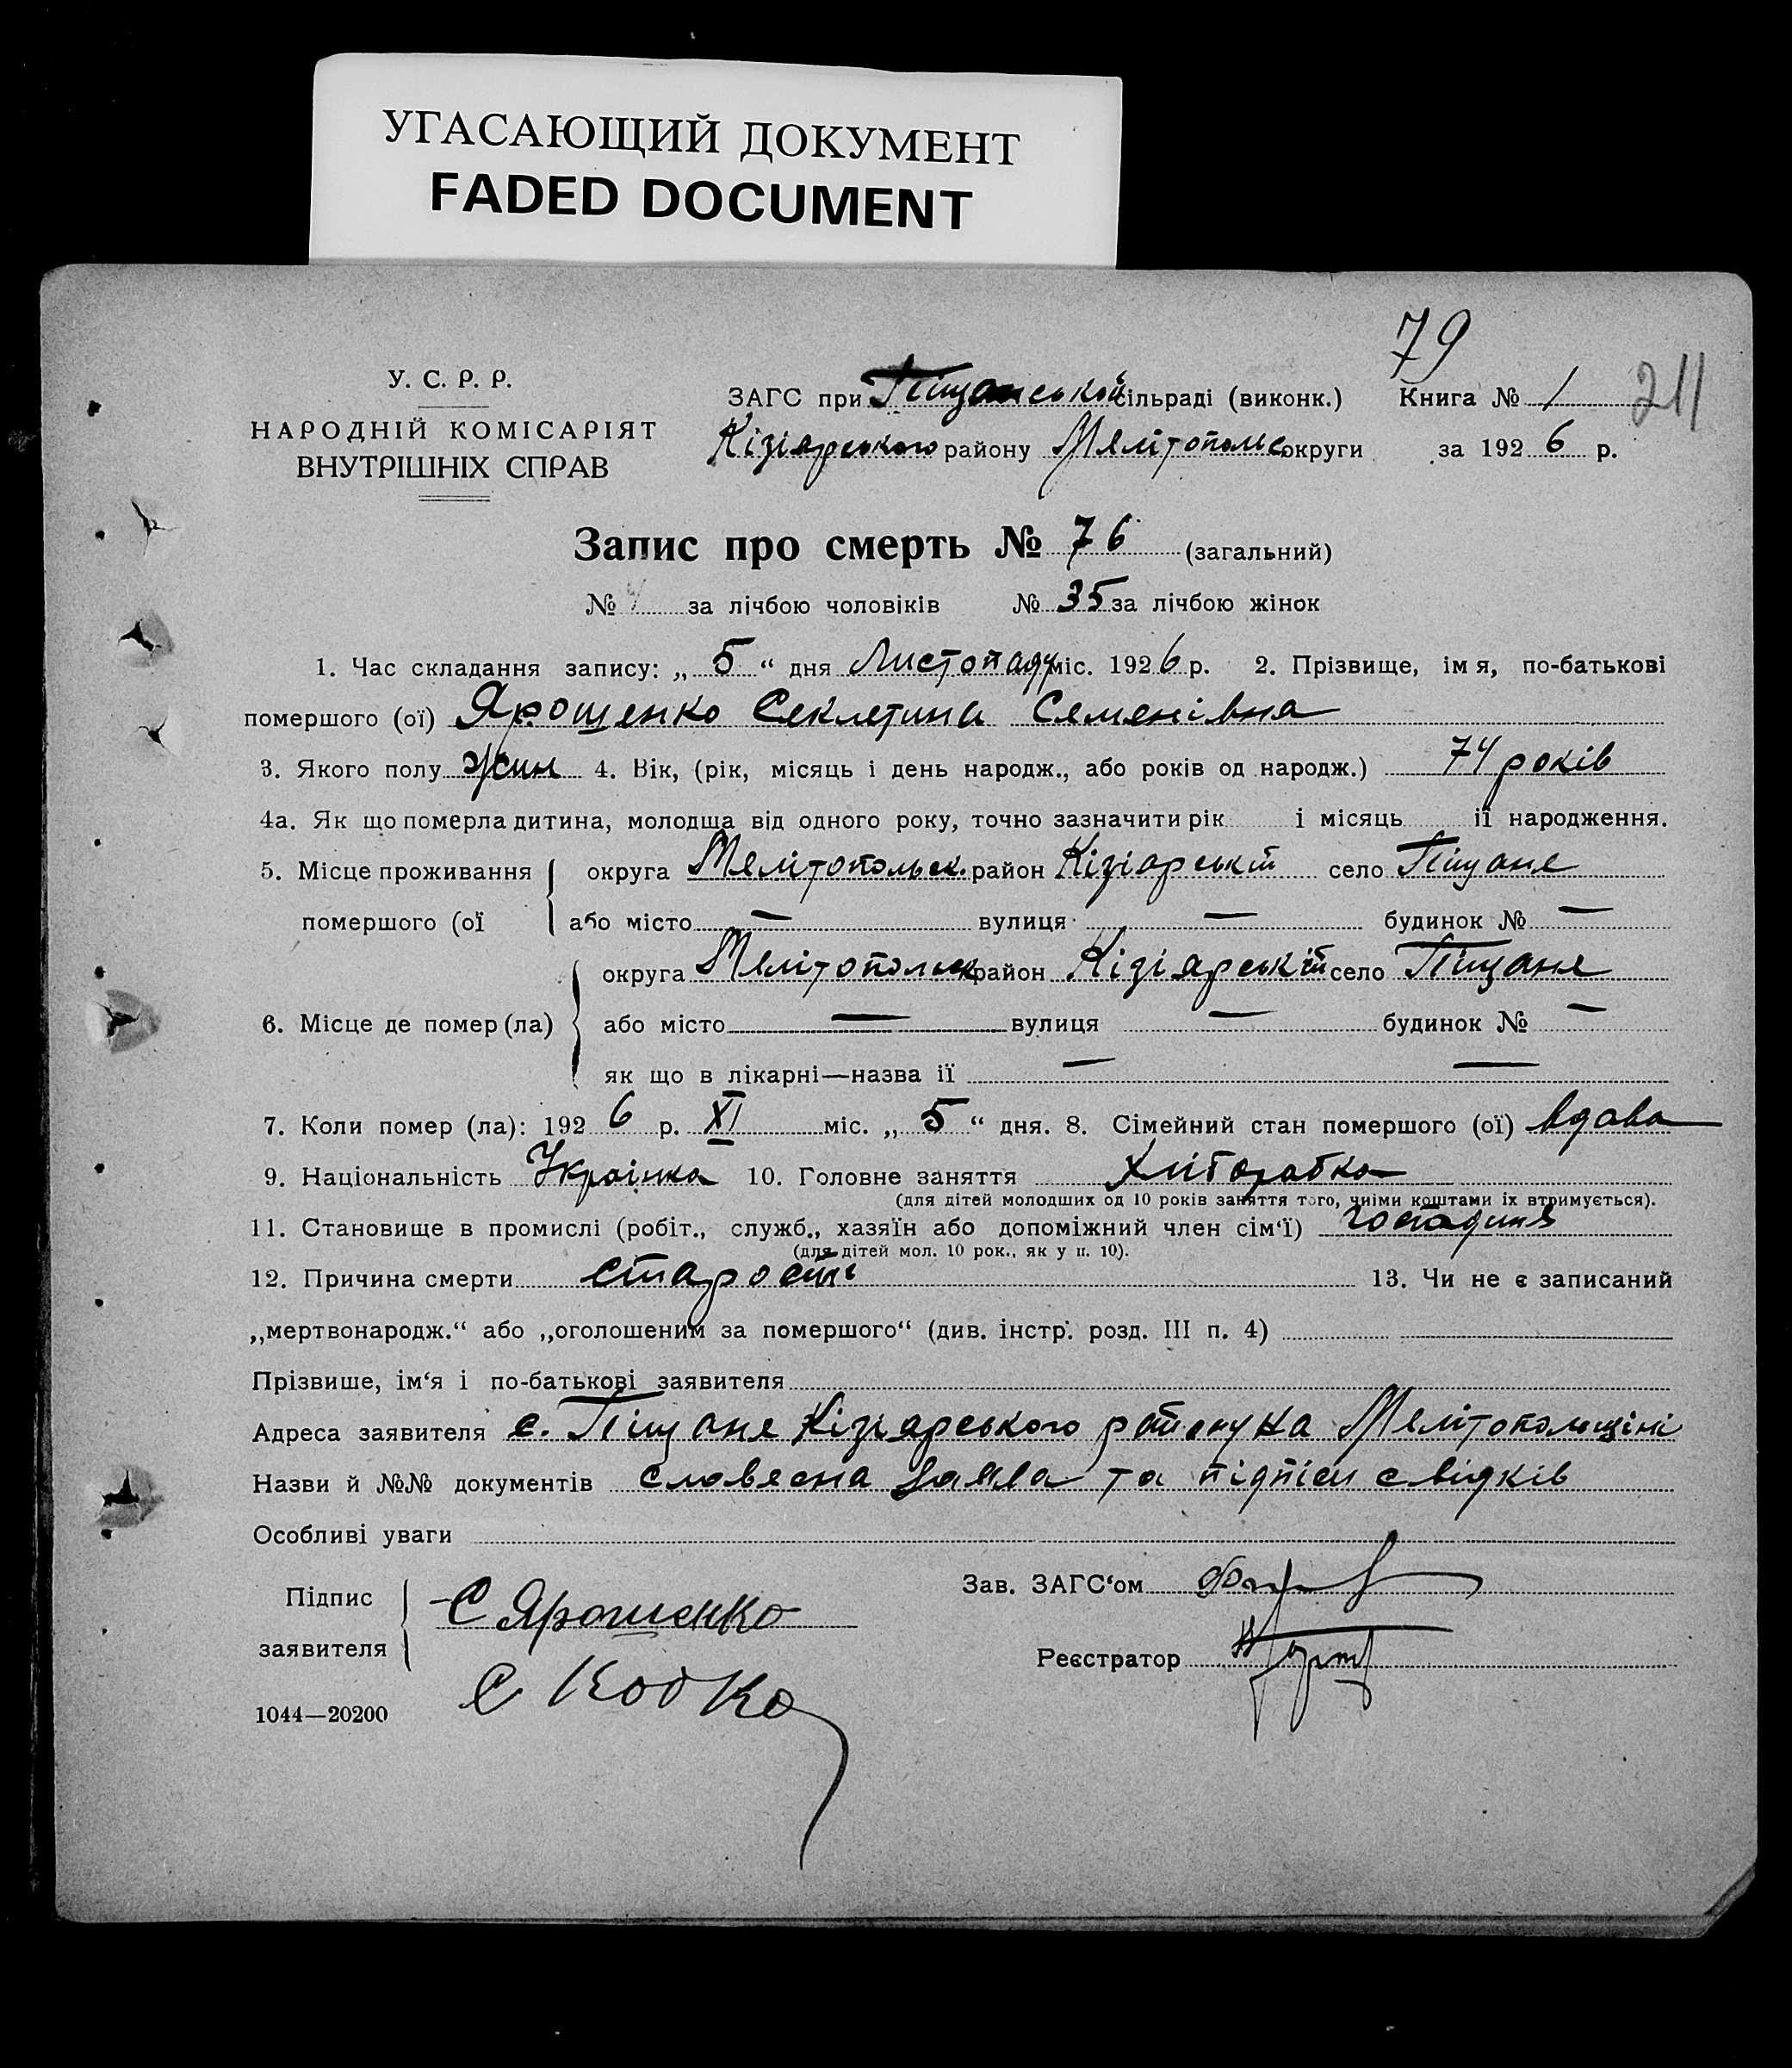 УГАСАЮЩИЙ ДОКУМЕНТ
FADED DOCUMENT
79
211
У. С. Р. Р.
НАРОДНІЙ КОМІСАРІЯТ
ВНУТРІШНІХ СПРАВ
ЗАГС при Піщанській сільраді (виконк.) Книга № 1
Кізіярського району Мелітопольс округи за 1926 р.
Запис про смерть № 76 (загальний)
№ за лічбою чоловіків № 35 за лічбою жінок
1. Час складання запису: „ 5 “ дня Листопаду міс. 1926 р. 2. Прізвище, імя, по-батькові
помершого (ої) Ярошенко Секлетина Семенівна
3. Якого полу жин 4. Вік, (рік, місяць і день народж., або років од народж.) 74 років
4а. Як що померла дитина, молодша від одного року, точно зазначити рік і місяць її народження.
5. Місце проживання округа Мелітопольск. район Кізіярській село Піщане
помершого (ої або місто — вулиця — будинок № —
округа Мелітопольск район Кізіярській село Піщане
6. Місце де помер (ла) або місто — вулиця — будинок № —
як що в лікарні—назва її — —
7. Коли помер (ла): 1926 р. XI міс. „ 5 “ дня. 8. Сімейний стан помершого (ої) вдова
9. Національність Українка 10. Головне заняття хліборобка
(для дітей молодших од 10 років заняття того, чиїми коштами їх втримується).
11. Становище в промислі (робіт., служб., хазяїн або допоміжний член сім‘ї) господиня
(для дітей мол. 10 рок., як у п. 10).
12. Причина смерти старость 13. Чи не є записаний
„мертвонародж.“ або „оголошеним за помершого“ (див. інстр. розд. III п. 4)
Прізвише, ім‘я і по-батькові заявителя
Адреса заявителя с. Піщане Кізіярського району на Мелітопольщіні
Назви й №№ документів словесна заява та підпіси свідків
Особливі уваги
Підпис
заявителя
С Ярошенко
С Кобко
Зав. ЗАГС‘ом
Реєстратор
1044—20200